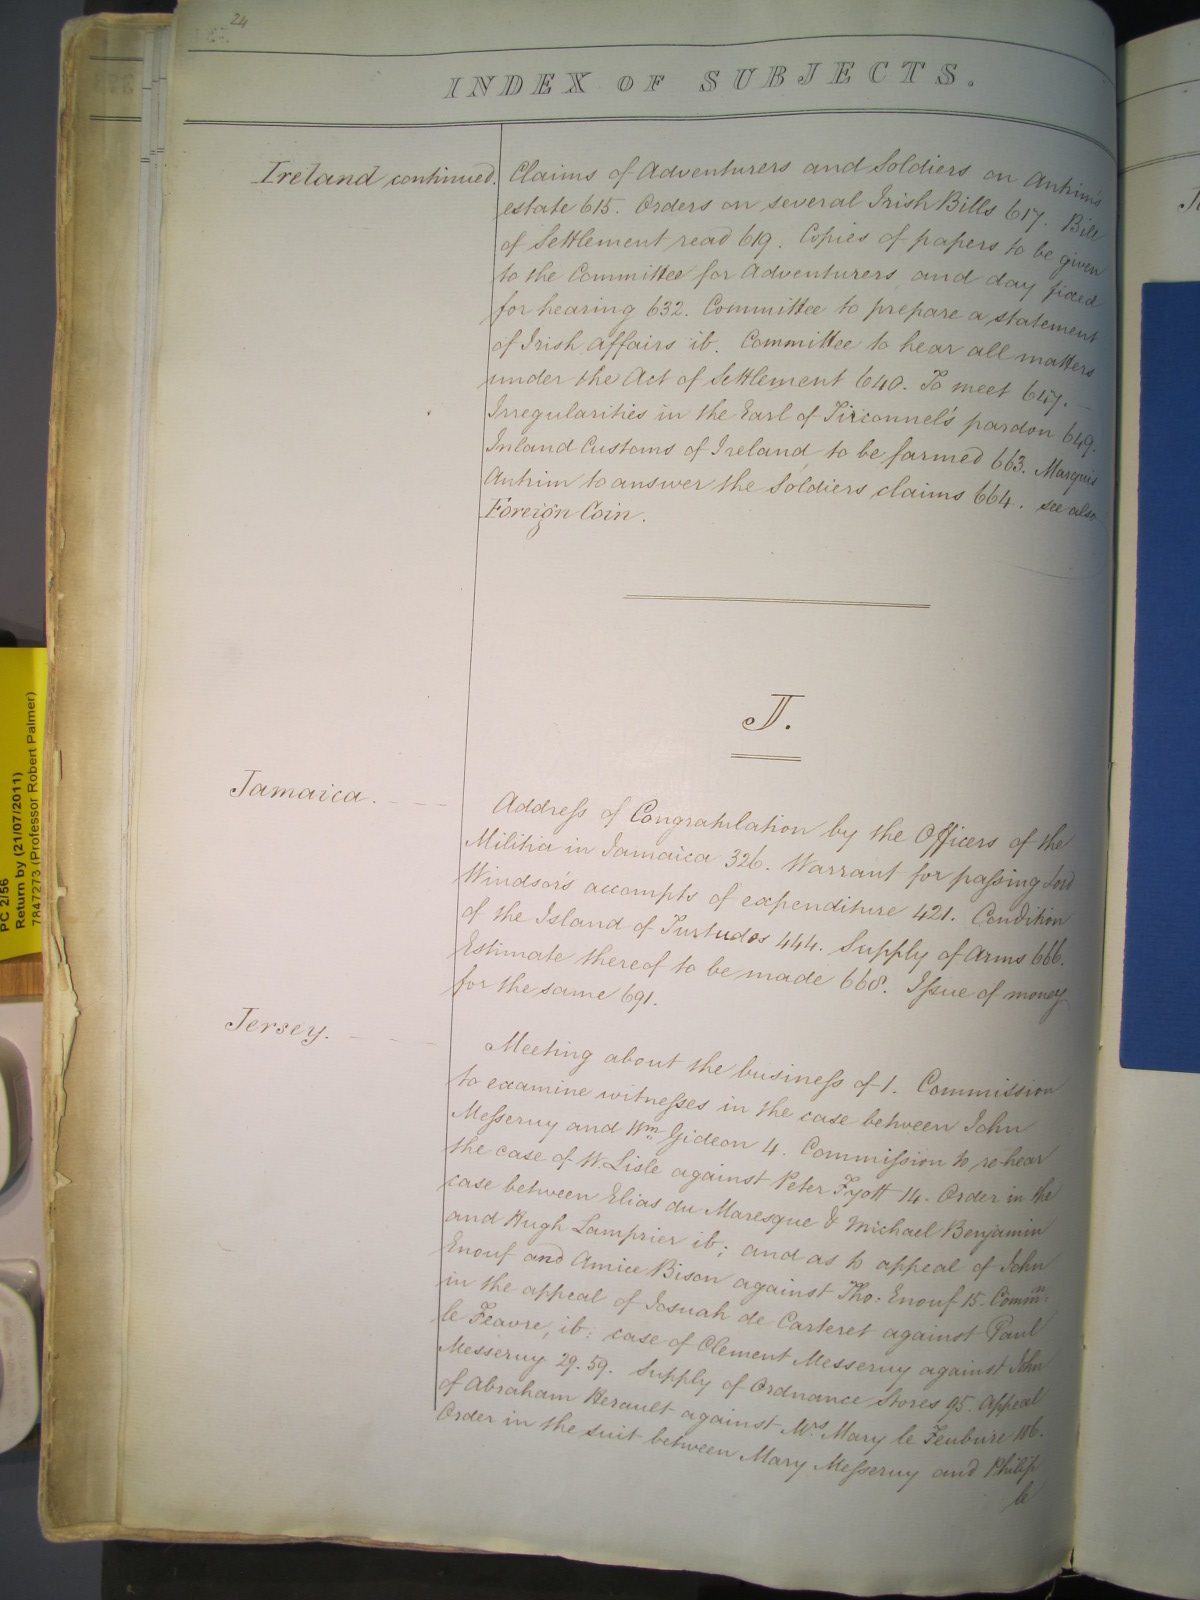 24
INDEX OF SUBJECTS.
Ireland continued.
Claims of Adventurers and Soldiers on Antrim's
estate 615. Orders on several Irish Bills 617. Bill
of Settlement read 619. Copies of papers to be given
to the Committee for Adventurers, and day fixed
for hearing 632. Committee to prepare a statement
of Irish affairs ib. Committee to hear all matters
under the Act of Settlement 640. To meet 647.
Irregularities in the Earl of Tirconnel's pardon 649.
Inland Customs of Ireland, to be farmed 663. Marquis
Antrim to answer the Soldiers claims 664. see also
Foreign Coin.
J.
Jamaica.
Address of Congratulation by the Officers of the
Militia in Jamaica 326. Warrant for passing Lord
Windsor's accompts of expenditure 421. Condition
of the Island of Turtudos 444. Supply of Arms 666.
Estimate thereof to be made 668. Issue of money
for the same 691.
Jersey.
Meeting about the business of 1. Commission
to examine witnesses in the case between John
Messeruy and Wm. Gideon 4. Commission to re-hear
the case of W. Lisle against Peter Fyott 14. Order in the
case between Elias du Maresque & Michael Benjamin
and Hugh Lamprier ib; and as to appeal of John
Enouf and Amice Bison against Tho: Enouf 15. Commn:
in the appeal of Josuah de Carteret against Paul
le Feavre, ib: case of Clement Messeruy against John
Messeruy 29. 59. Supply of Ordnance Stores 95. Appeal
of Abraham Herault against Mrs Mary le Feubure 116.
Order in the suit between Mary Messeruy and Philip
le
PC 2/56
Return by (21/07/2011)
7847273 (Professor Robert Palmer)